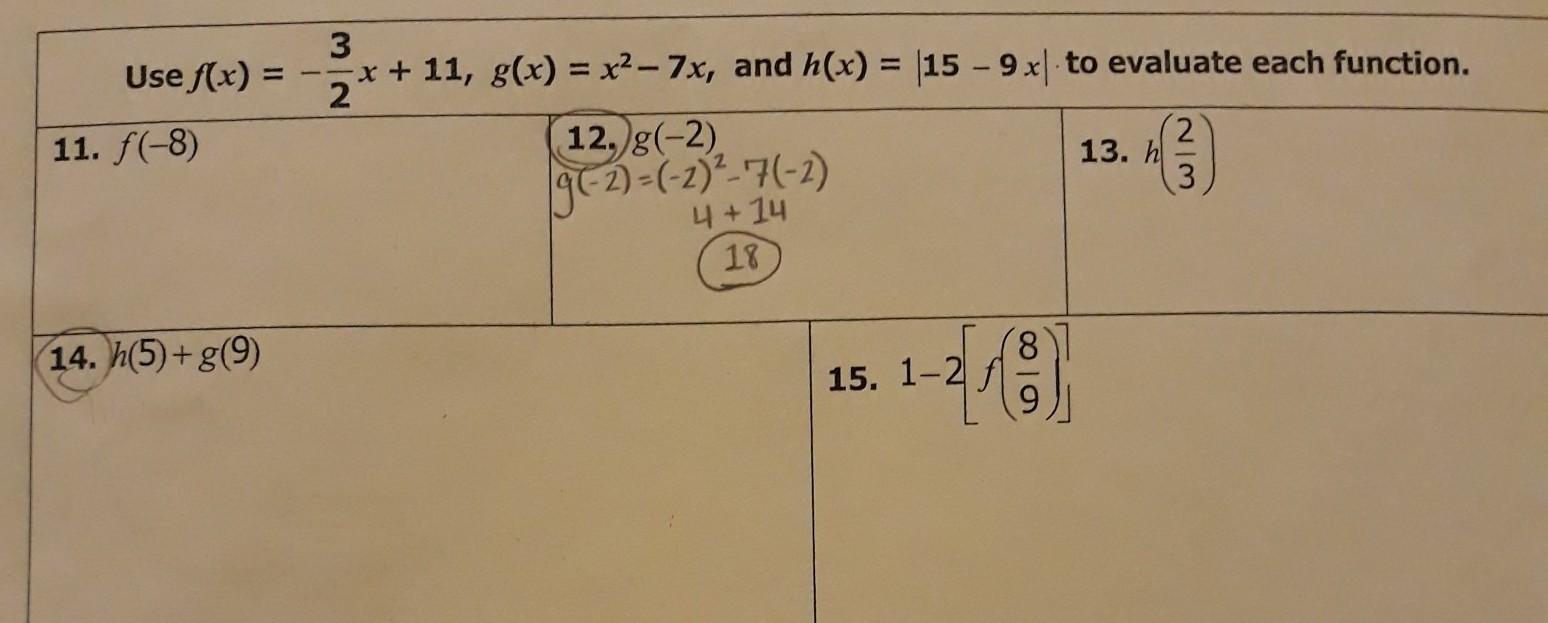 Use f(x) = -3/2 x + 11, g(x) = x² - 7x, and h(x) = |15 - 9x| to evaluate each function.
11. f(-8)
12. g(-2)
g(-2) = (-2)² - 7(-2)
4 + 14
18
13. h(2/3)
14. h(5) + g(9)
15. 1-2[f(8/9)]